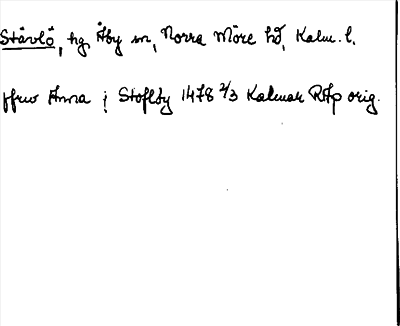 Stävlö, hg, Åby sn, Norra Möre hd, Kalm. l.
ffrw Anna j Stofløy 1478 2/3 Kalmar RAp orig.